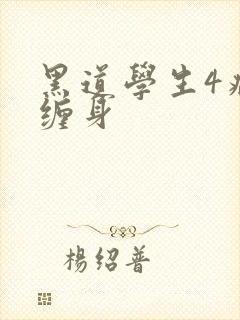 黑道學生4
缠身
楊绍普